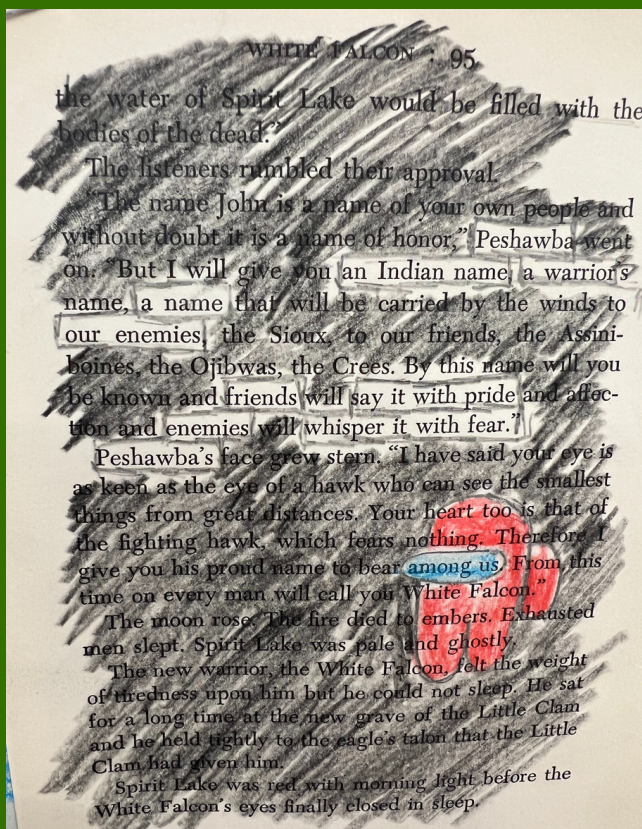 WHITE FALCON : 95
the water of Spirit Lake would be filled with the
bodies of the dead.”
The listeners rumbled their approval.
“The name John is a name of your own people and
without doubt it is a name of honor,” Peshawba went
on. “But I will give you an Indian name, a warrior’s
name, a name that will be carried by the winds to
our enemies, the Sioux, to our friends, the Assini-
boines, the Ojibwas, the Crees. By this name will you
be known and friends will say it with pride and affec-
tion and enemies will whisper it with fear.”
Peshawba’s face grew stern. “I have said your eye is
as keen as the eye of a hawk who can see the smallest
things from great distances. Your heart too is that of
the fighting hawk, which fears nothing. Therefore I
give you his proud name to bear among us. From this
time on every man will call you White Falcon.”
The moon rose. The fire died to embers. Exhausted
men slept. Spirit Lake was pale and ghostly.
The new warrior, the White Falcon, felt the weight
of tiredness upon him but he could not sleep. He sat
for a long time at the new grave of the Little Clam
and he held tightly to the eagle’s talon that the Little
Clam had given him.
Spirit Lake was red with morning light before the
White Falcon’s eyes finally closed in sleep.